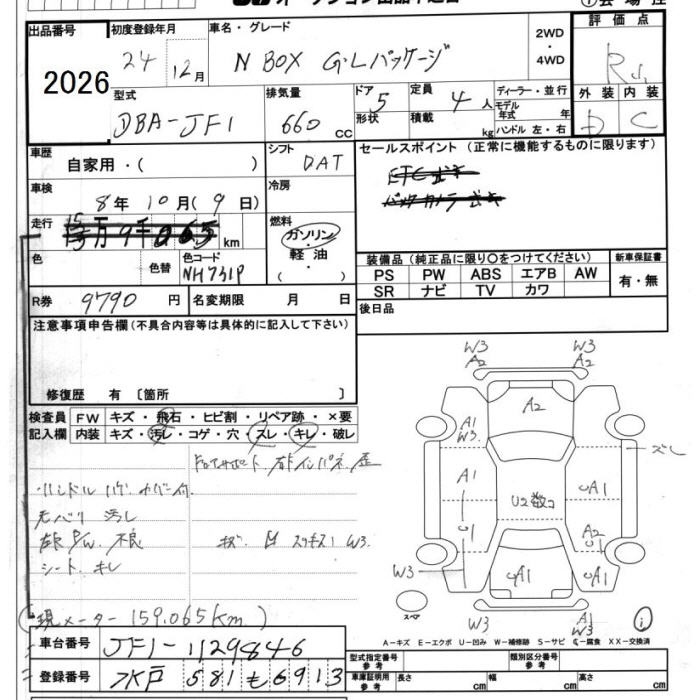 出品番号 初度登録年月 車名・グレード 2WD ・ 4WD 評価点
2026 24 12月 N BOX G・Lパッケージ R
型式 排気量 ドア 定員 ディーラー・並行 外装 内装
DBA-JF1 660 cc 5 4人 モデル年式 年 D C
形状 積載 kg ハンドル 左・右
車歴 シフト セールスポイント (正常に機能するものに限ります)
自家用・( ) DAT
車検 冷房
8年 10月(9日)
走行 燃料
km ガソリン・
軽油・
( )
色 色替 色コード
NH731P
装備品(純正品に限り○をつけてください) 新車保証書
PS PW ABS エアB AW 有・無
SR ナビ TV カワ
R券 9790 円 名変期限 月 日 後日品
注意事項申告欄(不具合内容等は具体的に記入して下さい)
修復歴 有 〔箇所 〕
検査員 FW キズ・飛石・ヒビ割・リペア跡・×要
記入欄 内装 キズ・汚レ・コゲ・穴・スレ・キレ・破レ
ハンドル ハゲ カバー付
天ベリ 汚レ
不良 キズ 凹 W3
シート キレ
(現メーター 159,065km)
車台番号 JF1-1129846
登録番号 水戸 581 も 6913
W3 W3
A2 A2
A2
A1
W3 ズレ
A1 U2数コ A1
A2
W3 A1 A1
スペア W3 A1
W3
A-キズ E-エクボ U-凹み W-補修跡 S-サビ C-腐食 XX-交換済
型式指定番号 参考 類別区分番号 参考
車庫証明用 参考 長さ cm 幅 cm 高さ cm